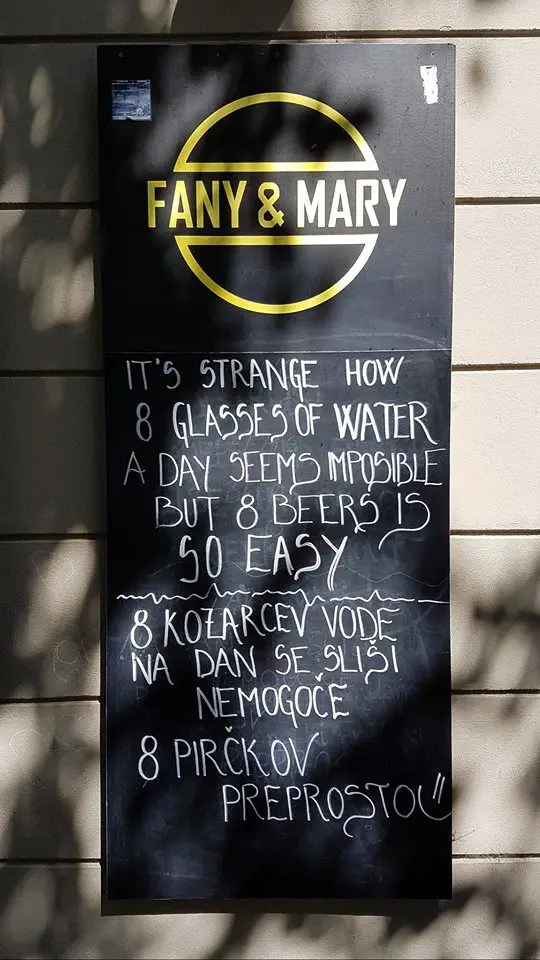 FANY & MARY
IT'S STRANGE HOW
8 GLASSES OF WATER
A DAY SEEMS IMPOSIBLE
BUT 8 BEERS IS
SO EASY
8 KOZARCEV VODE
NA DAN SE SLIŠI
NEMOGOČE
8 PIRČKOV
PREPROSTO